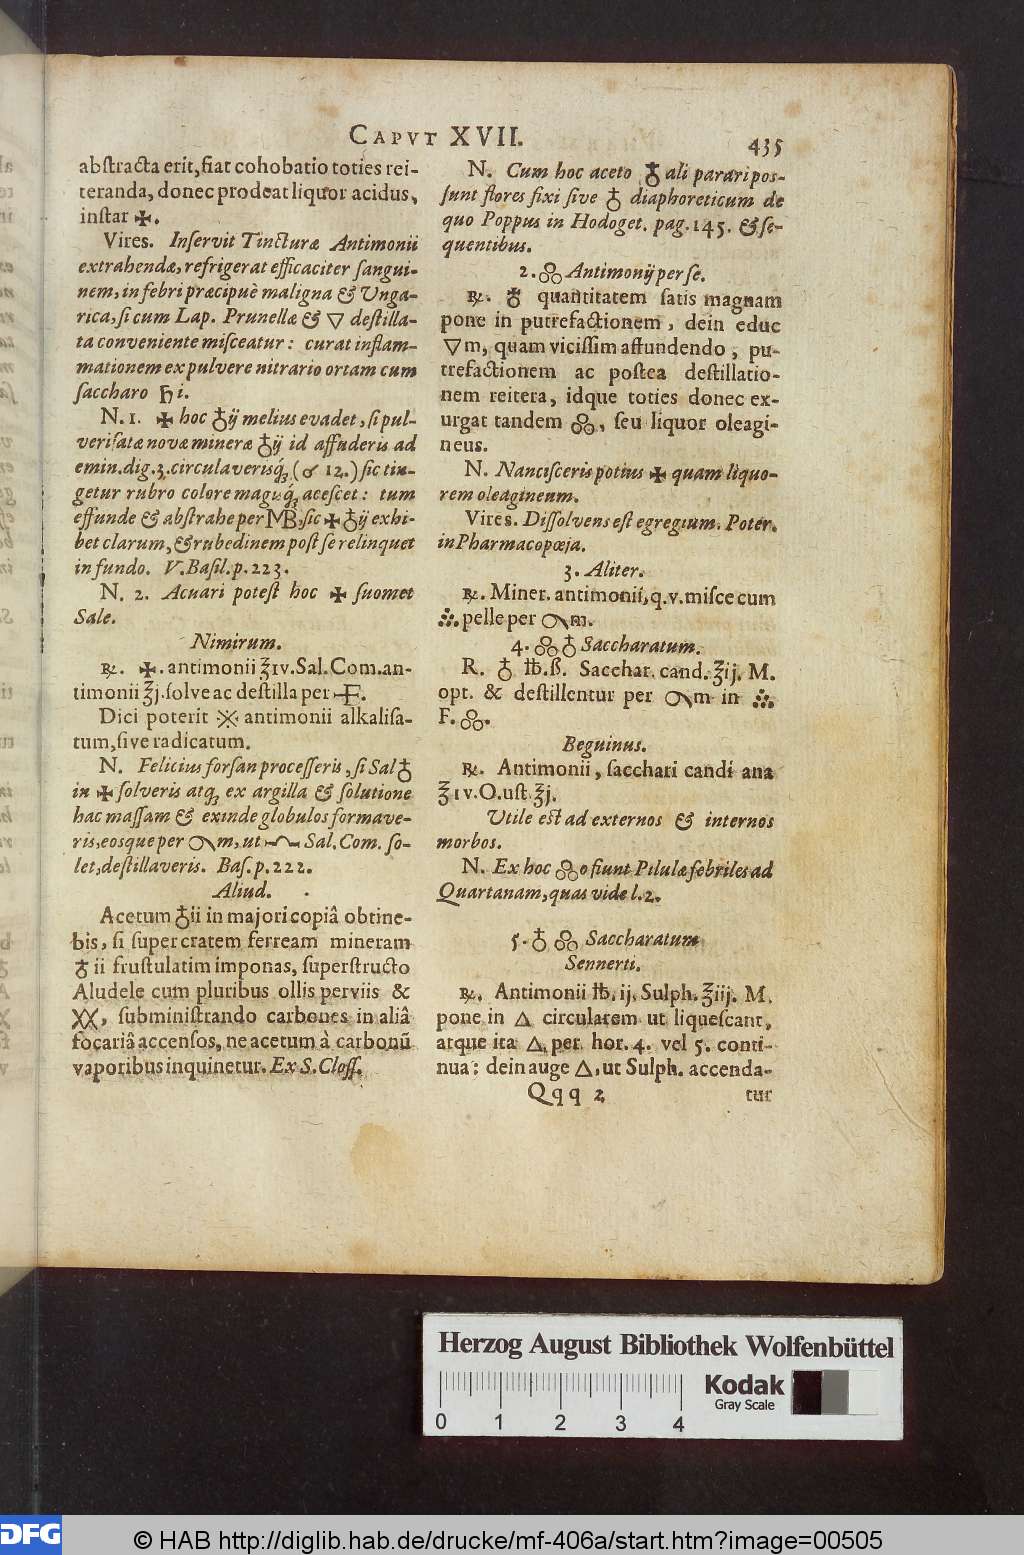 CAPVT XVII.
435
abſtracta erit, fiat cohobatio toties rei-
teranda, donec prodeat liquor acidus,
inſtar ✠.
Vires. Inſervit Tincturæ Antimonii
extrahendæ, refrigerat efficaciter ſangui-
nem, in febri præcipuè maligna & Vnga-
rica, ſi cum Lap. Prunellæ & ▽ deſtilla-
ta conveniente miſceatur: curat inflam-
mationem ex pulvere nitrario ortam cum
ſaccharo ♄i.
N. 1. ✠ hoc ♁ij melius evadet, ſi pul-
veriſatæ novæ mineræ ♁ij id affuderis ad
emin. dig. 3. circulaverisq́; (♂ 12.) ſic tin-
getur rubro colore magisq́; aceſcet: tum
effunde & abſtrahe per MB, ſic ✠ ♁ij exhi-
bet clarum, & rubedinem poſt ſe relinquet
in fundo. V. Baſil. p. 223.
N. 2. Acuari poteſt hoc ✠ ſuomet
Sale.
Nimirum.
℞. ✠. antimonii ℥iv. Sal. Com. an-
timonii ℥j. ſolve ac deſtilla per.
Dici poterit antimonii alkaliſa-
tum, ſive radicatum.
N. Felicius forſan proceſſeris, ſi Sal ♁
in ✠ ſolveris atq; ex argilla & ſolutione
hac maſſam & exinde globulos formave-
ris, eosque per m, ut Sal. Com. ſo-
let, deſtillaveris. Baſ. p. 222.
Aliud.
Acetum ♁ii in majori copiâ obtine-
bis, ſi ſuper cratem ferream mineram
♁ii fruſtulatim imponas, ſuperſtructo
Aludele cum pluribus ollis perviis &
XX, ſubminiſtrando carbones in aliâ
focariâ accenſos, ne acetum à carbonũ
vaporibus inquinetur. Ex S. Cloſſ.
N. Cum hoc aceto ♁ali parari poſ-
ſunt flores fixi ſive ♁ diaphoreticum de
quo Poppus in Hodoget. pag. 145. & ſe-
quentibus.
2. Antimonij per ſe.
℞. ♁ quantitatem ſatis magnam
pone in putrefactionem, dein educ
▽m, quam viciſſim affundendo, pu-
trefactionem ac poſtea deſtillatio-
nem reitera, idque toties donec ex-
urgat tandem, ſeu liquor oleagi-
neus.
N. Nanciſceris potius ✠ quam liquo-
rem oleagineum.
Vires. Diſſolvens eſt egregium. Poter.
in Pharmacopœja.
3. Aliter.
℞. Miner. antimonii, q. v. miſce cum
pelle per m.
4. ♁ Saccharatum.
R. ♁ ℔.ß. Sacchar. cand. ℥ij. M.
opt. & deſtillentur per m in
F.
Beguinus.
℞. Antimonii, ſacchari candi ana
℥iv. O. uſt. ℥j.
Utile eſt ad externos & internos
morbos.
N. Ex hoc o fiunt Pilulæ febriles ad
Quartanam, quas vide l. 2.
5. ♁ Saccharatum
Sennerti.
℞. Antimonii ℔. ij. Sulph. ℥iij. M.
pone in △ circularem ut liqueſcant,
atque ita △. per hor. 4. vel 5. conti-
nua: dein auge △, ut Sulph. accenda-
Qqq 2
tur
Herzog August Bibliothek Wolfenbüttel
Kodak
Gray Scale
0 1 2 3 4
DFG
© HAB http://diglib.hab.de/drucke/mf-406a/start.htm?image=00505